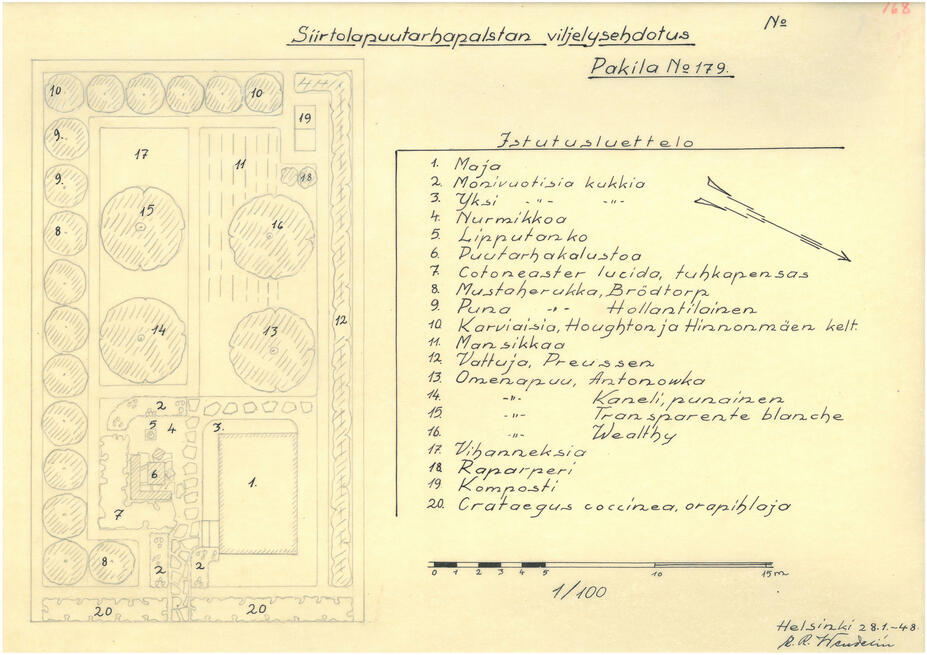 168
Nº
Siirtolapuutarhapalstan viljelysehdotus
Pakila Nº 179.
Istutusluettelo
1. Maja
2. Monivuotisia kukkia
3. Yksi -"- -"-
4. Nurmikkoa
5. Lipputanko
6. Puutarhakalustoa
7. Cotoneaster lucida, tuhkapensas
8. Mustaherukka, Brödtorp
9. Puna -"- Hollantilainen
10. Karviaisia, Houghton ja Hinnonmäen kelt.
11. Mansikkaa
12. Vattuja, Preussen
13. Omenapuu, Antonowka
14. -"- Kaneli, punainen
15. -"- Transparente blanche
16. -"- Wealthy
17. Vihanneksia
18. Raparperi
19. Komposti
20. Crataegus coccinea, orapihlaja
10 10
19
9.
17
11
9.
18
15
16
8
12
14
13
2
5 4
3.
6
1.
7
8
2 2
20 20
0 1 2 3 4 5 10 15 m
1/100
Helsinki 28.1.-48.